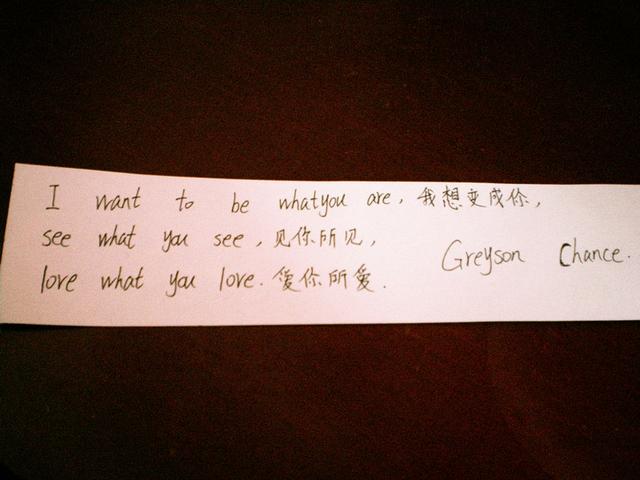 I want to be whatyou are, 我想变成你,
see what you see, 见你所见,
love what you love. 爱你所爱.
Greyson Chance.